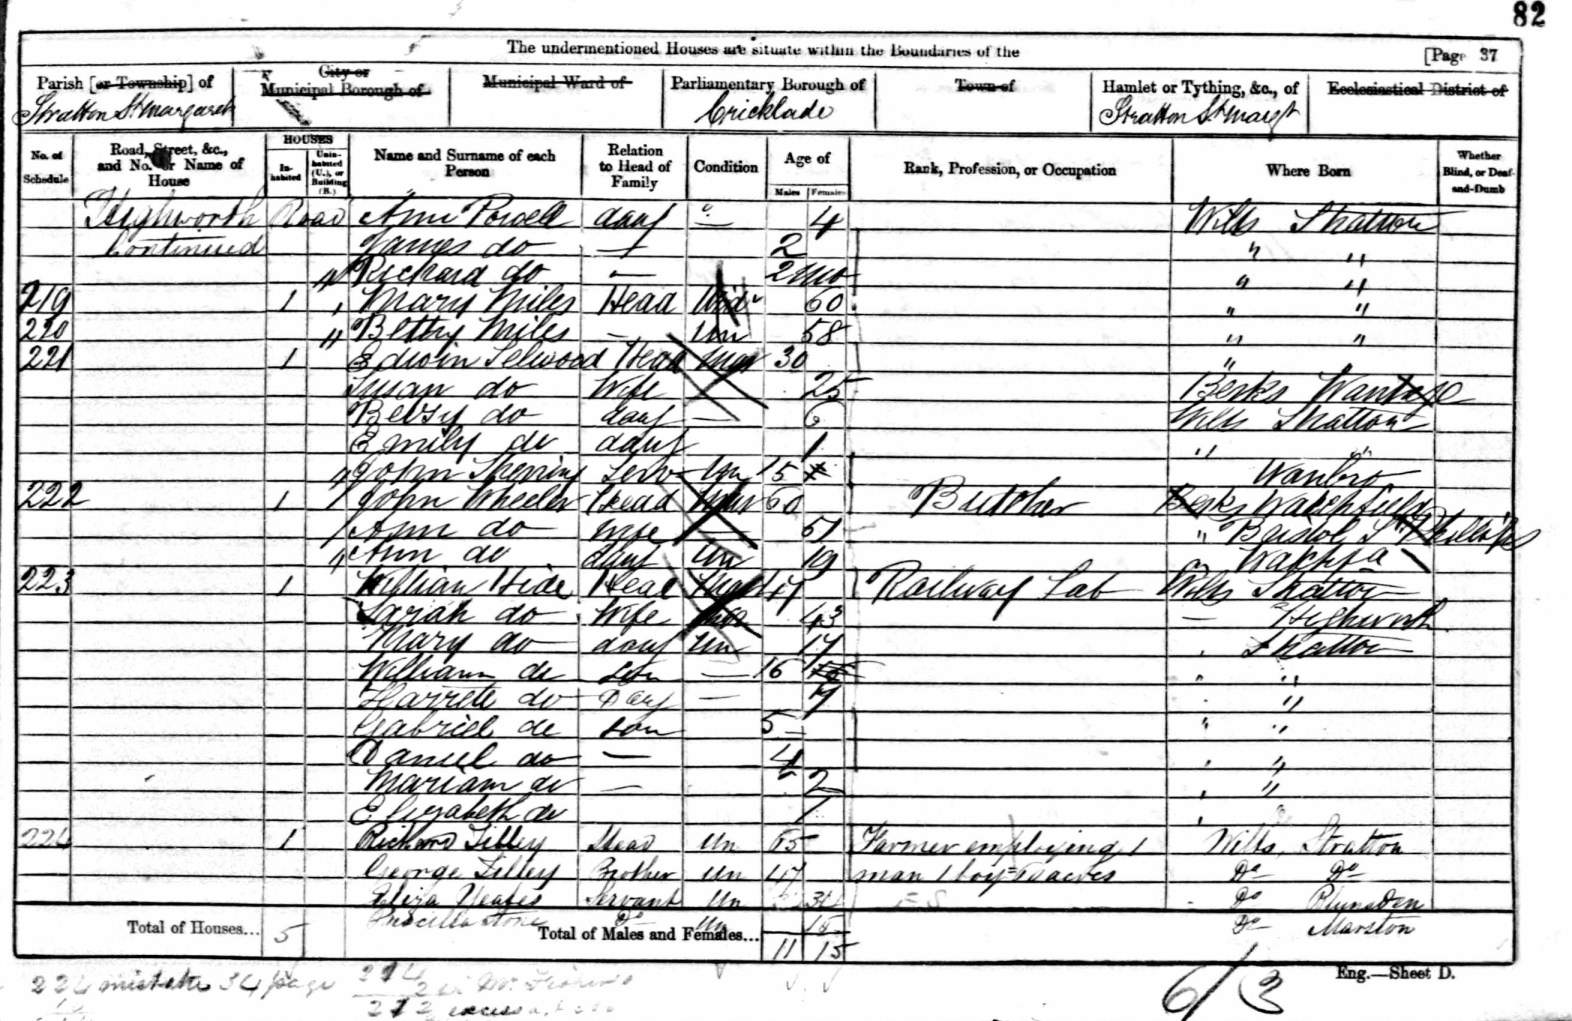 82
The undermentioned Houses are situate within the Boundaries of the
[Page 37
Parish [or Township] of Stratton St Margaret
City or Municipal Borough of
Municipal Ward of
Parliamentary Borough of Cricklade
Town of
Hamlet or Tything, &c., of Stratton St Margt
Ecclesiastical District of
No. of Schedule
Road, Street, &c., and No. or Name of House
HOUSES
In-habited
Unin-habited (U.), or Building (B.)
Name and Surname of each Person
Relation to Head of Family
Condition
Age of
Males
Females
Rank, Profession, or Occupation
Where Born
Whether Blind, or Deaf-and-Dumb
Highworth Road Ann Powell dau — 4 Wilts Stratton
Continued James do — 2 " "
Richard do — 2 mo " "
219 1 Mary Miles Head Wid 60 " "
220 Betty Miles — Un 58 " "
221 1 Edwin Selwood Head Mar 30 "
Susan do Wife 25 Berks Wantage
Betsy do dau — 6 Wilts Stratton
Emily do dau 1 " "
John Serv Un 15 Wanbro
222 1 John Wheeler Head Mar 60 Butcher Berks Watchfield
Ann do Wife 51 " Bristol St Phillips
Ann do dau Un 19
223 1 William Hide Head Mar 47 Railway Lab Wilts Stratton
Sarah do Wife Mar 43 — Highworth
Mary do dau Un 17 Stratton
William do son — 16 " "
Harriete do Dau — 7 "
Gabriel do son 5 " "
Daniel do — 4 "
Mariam do — 2 "
Elizabeth do 1
224 1 Richard Tilley Head Un 65 Farmer employing 1 Wilts, Stratton
George Tilley Brother Un 47 man 1 boy acres Do Do
Eliza Servant Un 34 Do Blunsden
Priscilla Stone Do Un 15 Do Marston
Total of Houses... 5
Total of Males and Females... 11 15
Eng.—Sheet D.
224 mistake 34 page
6/3